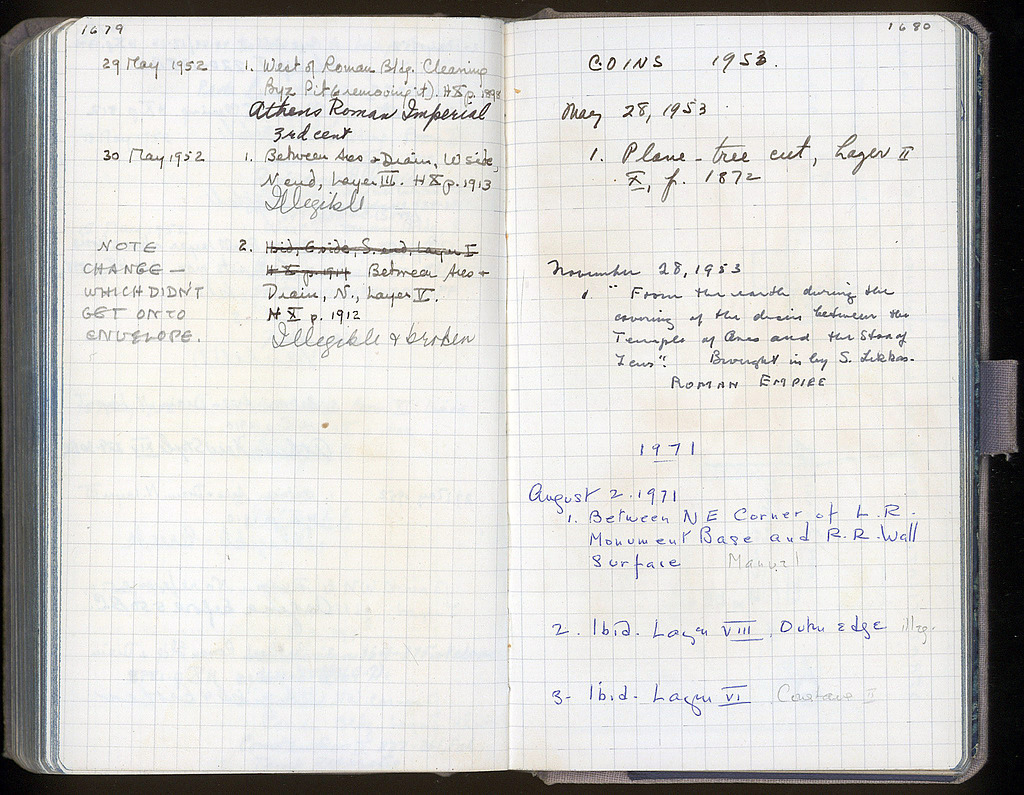 1679
29 May 1952 1. West of Roman Bldg. Cleaning
Byz Pit (removing it). H X p. 1898
Athens Roman Imperial
3rd cent
30 May 1952 1. Between Ares & Drain, W side,
N end, Layer III. H X p. 1913
Illegible
NOTE
CHANGE —
WHICH DIDN'T
GET ONTO
ENVELOPE.
2. Ibid, E side, S. end, Layer I
H X p. 1914 Between Ares +
Drain, N., Layer V.
H X p. 1912
Illegible & broken
1680
COINS 1953.
May 28, 1953
1. Plane-tree cut, Layer II
X, p. 1872
November 28, 1953
1. "From the earth during the
covering of the drain between the
Temple of Ares and the Stoa of
Zeus". Brought in by S. Lekkas.
ROMAN EMPIRE
1971
August 2. 1971
1. Between NE Corner of L.R.
Monument Base and R.R. Wall
Surface Manuel I
2. Ibid. Layer VIII, Outer edge illeg.
3- Ibid. Layer VI Constans II